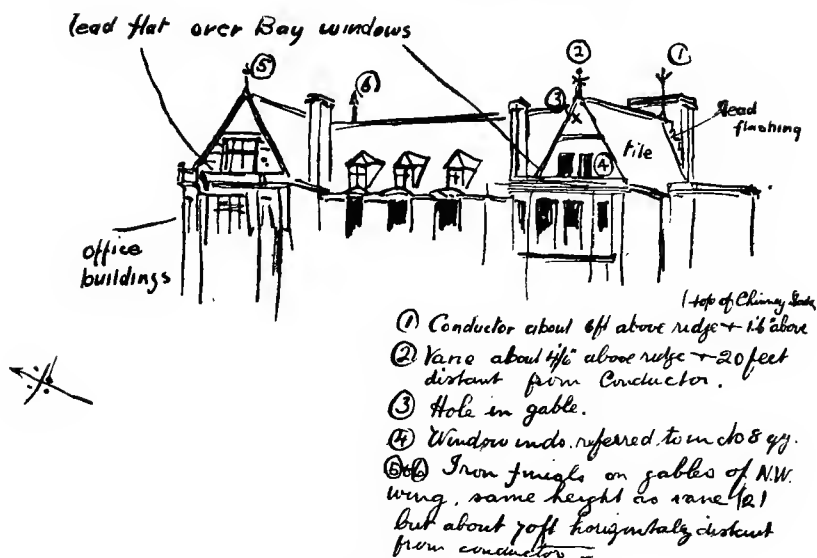 lead flat over Bay windows
⑤
⑥
②
①
③
④
lead flashing
tile
office buildings
(top of Chimney Stack
① Conductor about 6ft above ridge + 1'.6" above
② Vane about 4'/6" above ridge + 20 feet
distant from Conductor.
③ Hole in gable.
④ Window referred to in No 8 qy.
⑤+⑥ Iron finials on gables of N.W.
wing, same height as vane (2)
but about 70ft horizontaly distant
from conductor